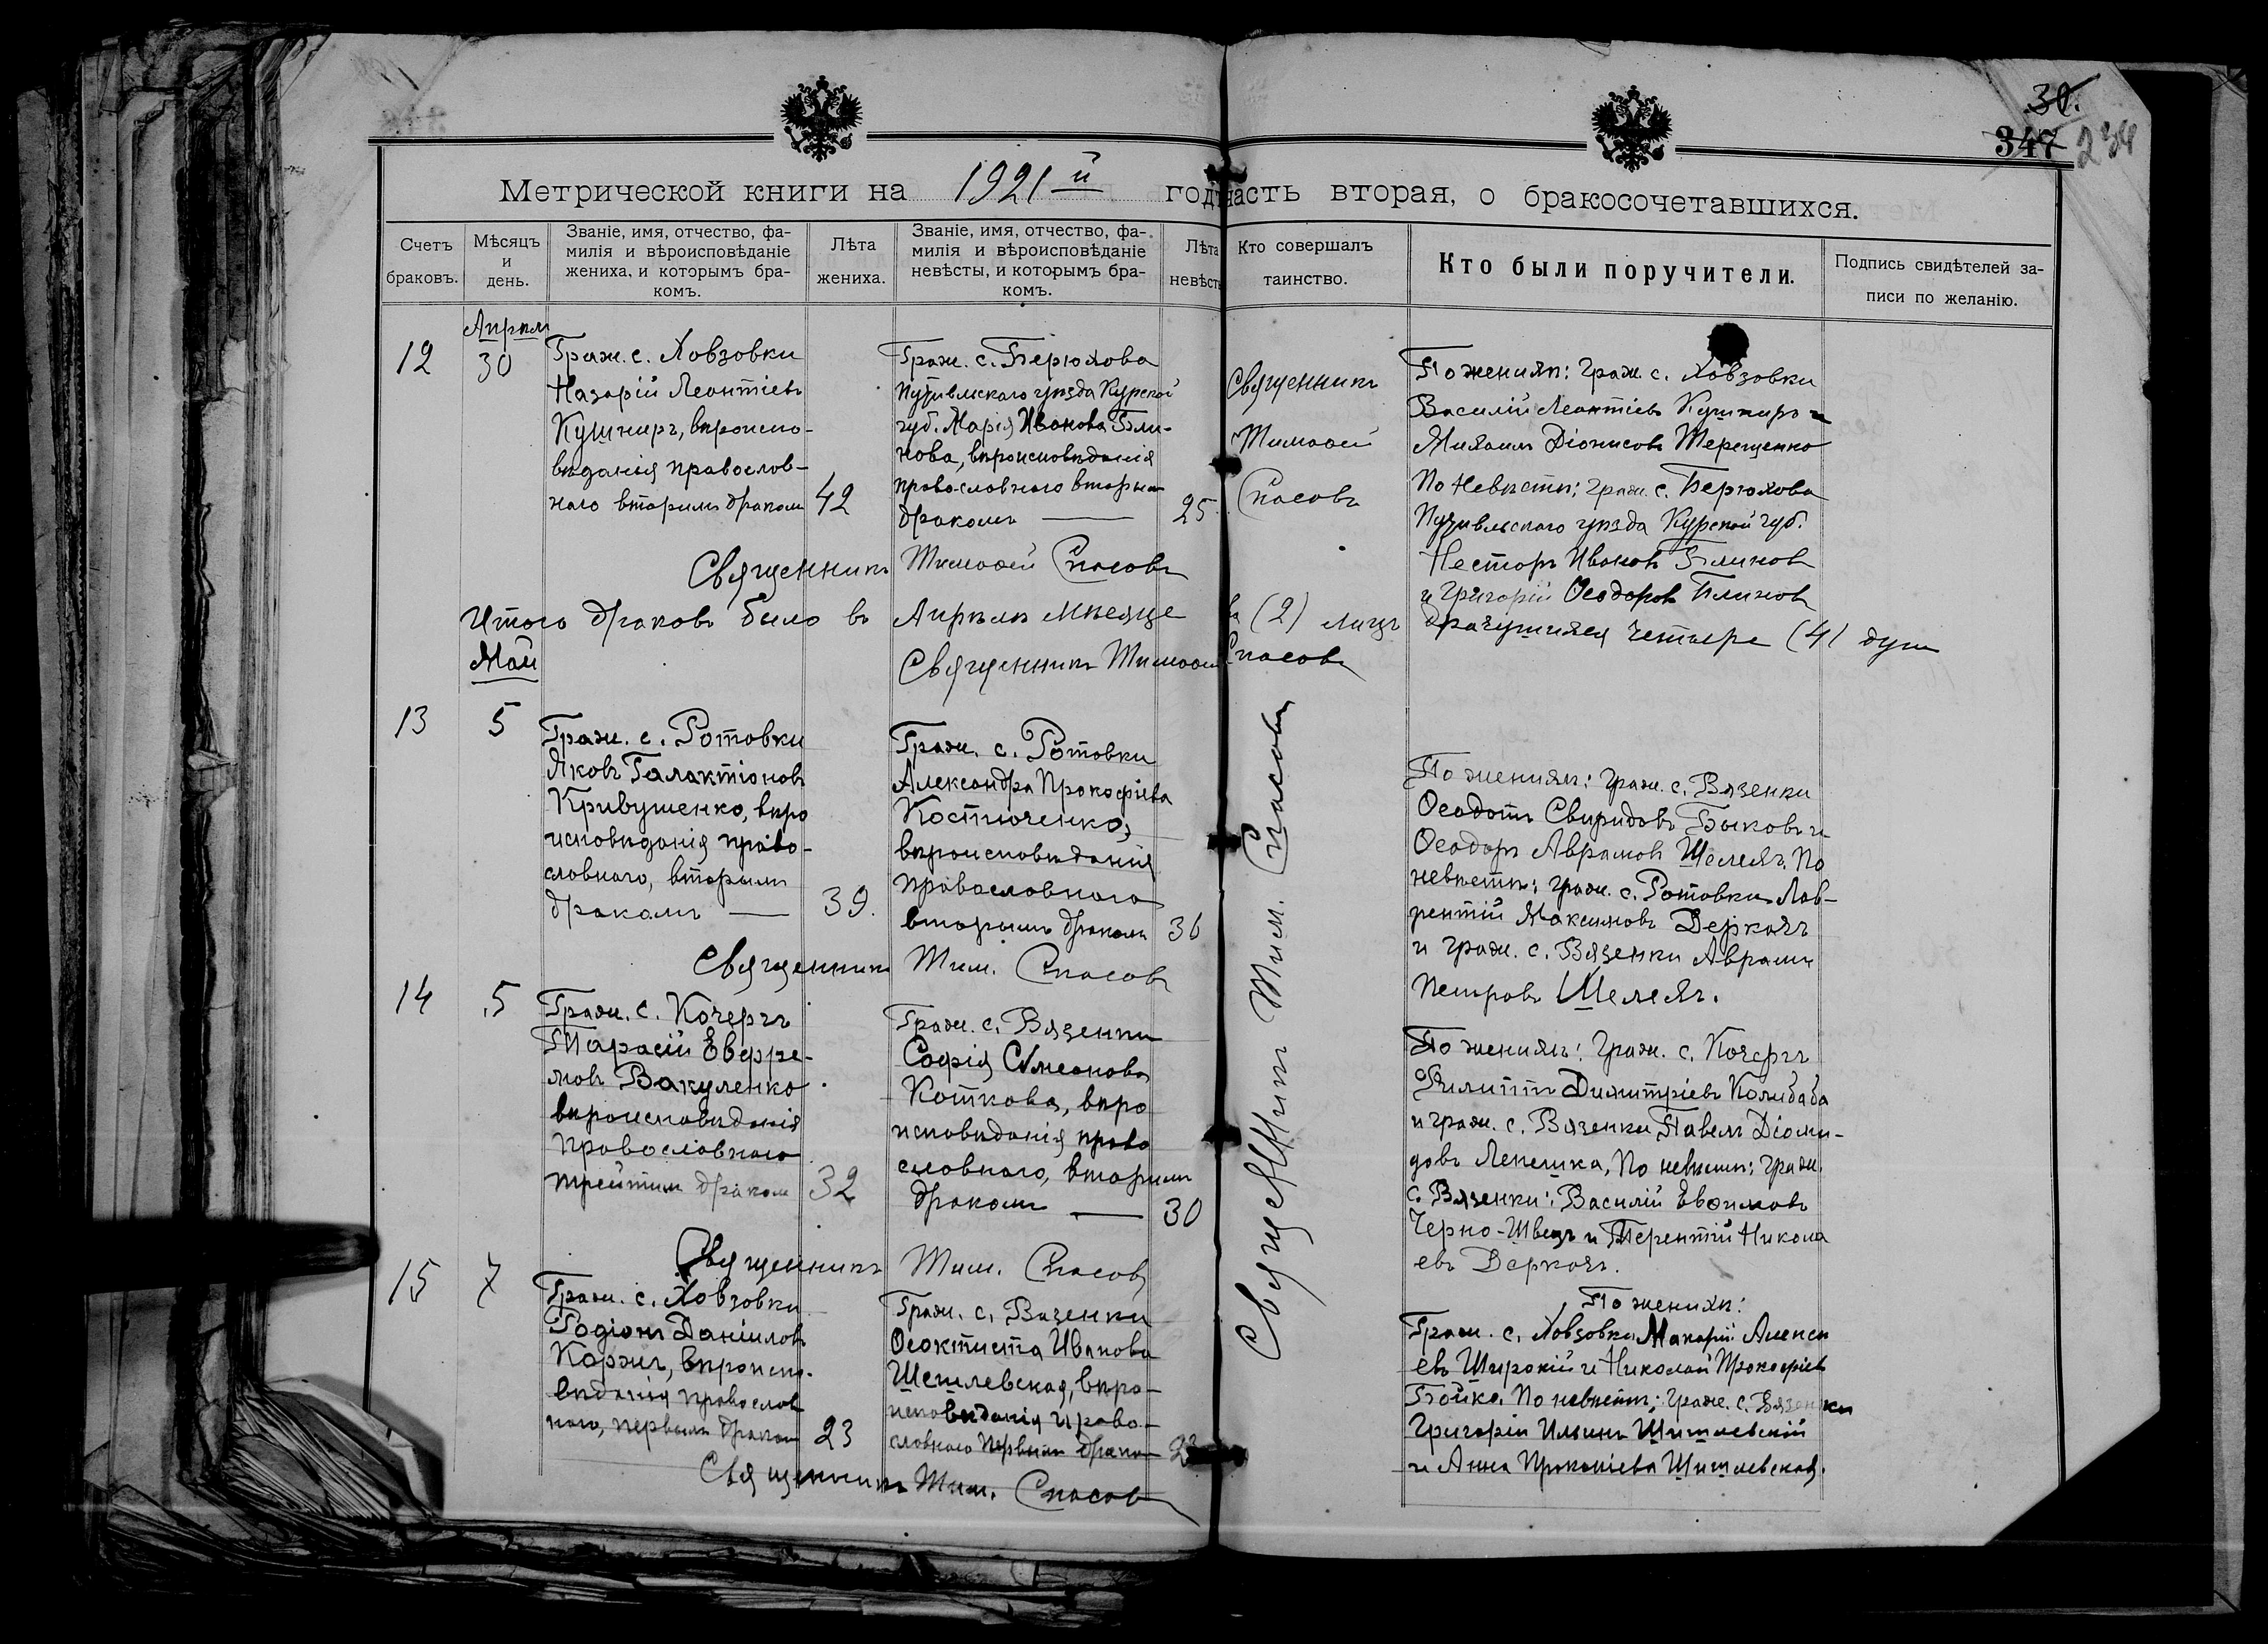 30.
347 234
Метрической книги на 1921й годъ часть вторая, о бракосочетавшихся.
Счетъ браковъ.
Мѣсяцъ и день.
Званіе, имя, отчество, фа-
милія и вѣроисповѣданіе
жениха, и которымъ бра-
комъ.
Лѣта жениха.
Званіе, имя, отчество, фа-
милія и вѣроисповѣданіе
невѣсты, и которымъ бра-
комъ.
Лѣта невѣсты
Кто совершалъ
таинство.
Кто были поручители.
Подпись свидѣтелей за-
писи по желанію.
12
Апрѣль
30
Граж. с. Ховзовки
Назарій Леонтіевъ
Кушниръ, вѣроиспо-
вѣданія православ-
наго вторымъ бракомъ
42
Граж. с. Берюхова
Путивльскаго уѣзда Курской
губ. Марія Иванова Бли-
нова, вѣроисповѣданія
православнаго вторым
бракомъ
25
Священникъ
Тимофей
Спасовъ
По женихѣ: граж. с. Ховзовки
Василій Леонтіевъ Кушниръ и
Михаилъ Діонисовъ Терещенко
По невѣстѣ: граж. с. Берюхова
Путивльскаго уѣзда Курской губ.
Несторъ Ивановъ Блиновъ
и Григорій Ѳеодоровъ Блиновъ
Священникъ Тимофей Спасовъ
Итого браковъ было въ Апрѣлѣ мѣсяце (2) лицъ брачущихся четыре (4) душ
Май
Священникъ Тимофей Спасовъ
13
5
Граж. с. Ротовки
Яковъ Галактіоновъ
Кривушенко, вѣро
исповѣданія право-
славнаго, вторымъ
бракомъ
39.
Граж. с. Ротовки
Александра Прокофіева
Костюченко,
вѣроисповѣданія
православнаго
вторымъ бракомъ
36
Священникъ Тим. Спасовъ
По женихѣ: граж. с. Вязенки
Ѳеодотъ Свиридовъ Быковъ и
Ѳеодоръ Аврамовъ Шелехъ. По
невѣстѣ: граж. с. Ротовки Лав-
рентій Максимовъ Деркачъ
и граж. с. Вязенки Аврамъ
Петровъ Шелехъ.
Священникъ Тим. Спасовъ
14
5
Граж. с. Кочергъ
Тарасій Евфре-
мовъ Вакуленко
вѣроисповѣданія
православнаго
третьимъ бракомъ
32
Граж. с. Вязенки
Софія Симеонова
Коткова, вѣро
исповѣданія право
славнаго, вторымъ
бракомъ
30
По женихѣ: граж. с. Кочергъ
Филиппъ Димитріевъ Колибаба
и граж. с. Вязенки Павелъ Діоми-
довъ Лепешка, По невѣстѣ: граж.
с. Вязенки: Василій Евфимовъ
Черно-Швецъ и Терентій Никола
евъ Деркачъ.
Священникъ Тим. Спасовъ
15
7
Граж. с. Ховзовки
Родіонъ Даніиловъ
Коржъ, вѣроиспо-
вѣданія православ
наго, первымъ бракомъ
23
Граж. с. Вязенки
Ѳеоктиста Иванова
Шешлевская, вѣро-
исповѣданія право-
славнаго первымъ брако
По женихѣ:
Граж. с. Ховзовки Макарій Алексѣ
евъ Широкій и Николай Прокофіевъ
Бойко. По невѣстѣ: граж. с. Вязенки
Григорій Ильинъ Шишлевскій
и Анна Прокопіева Шишлевская.
Священникъ Тим. Спасовъ